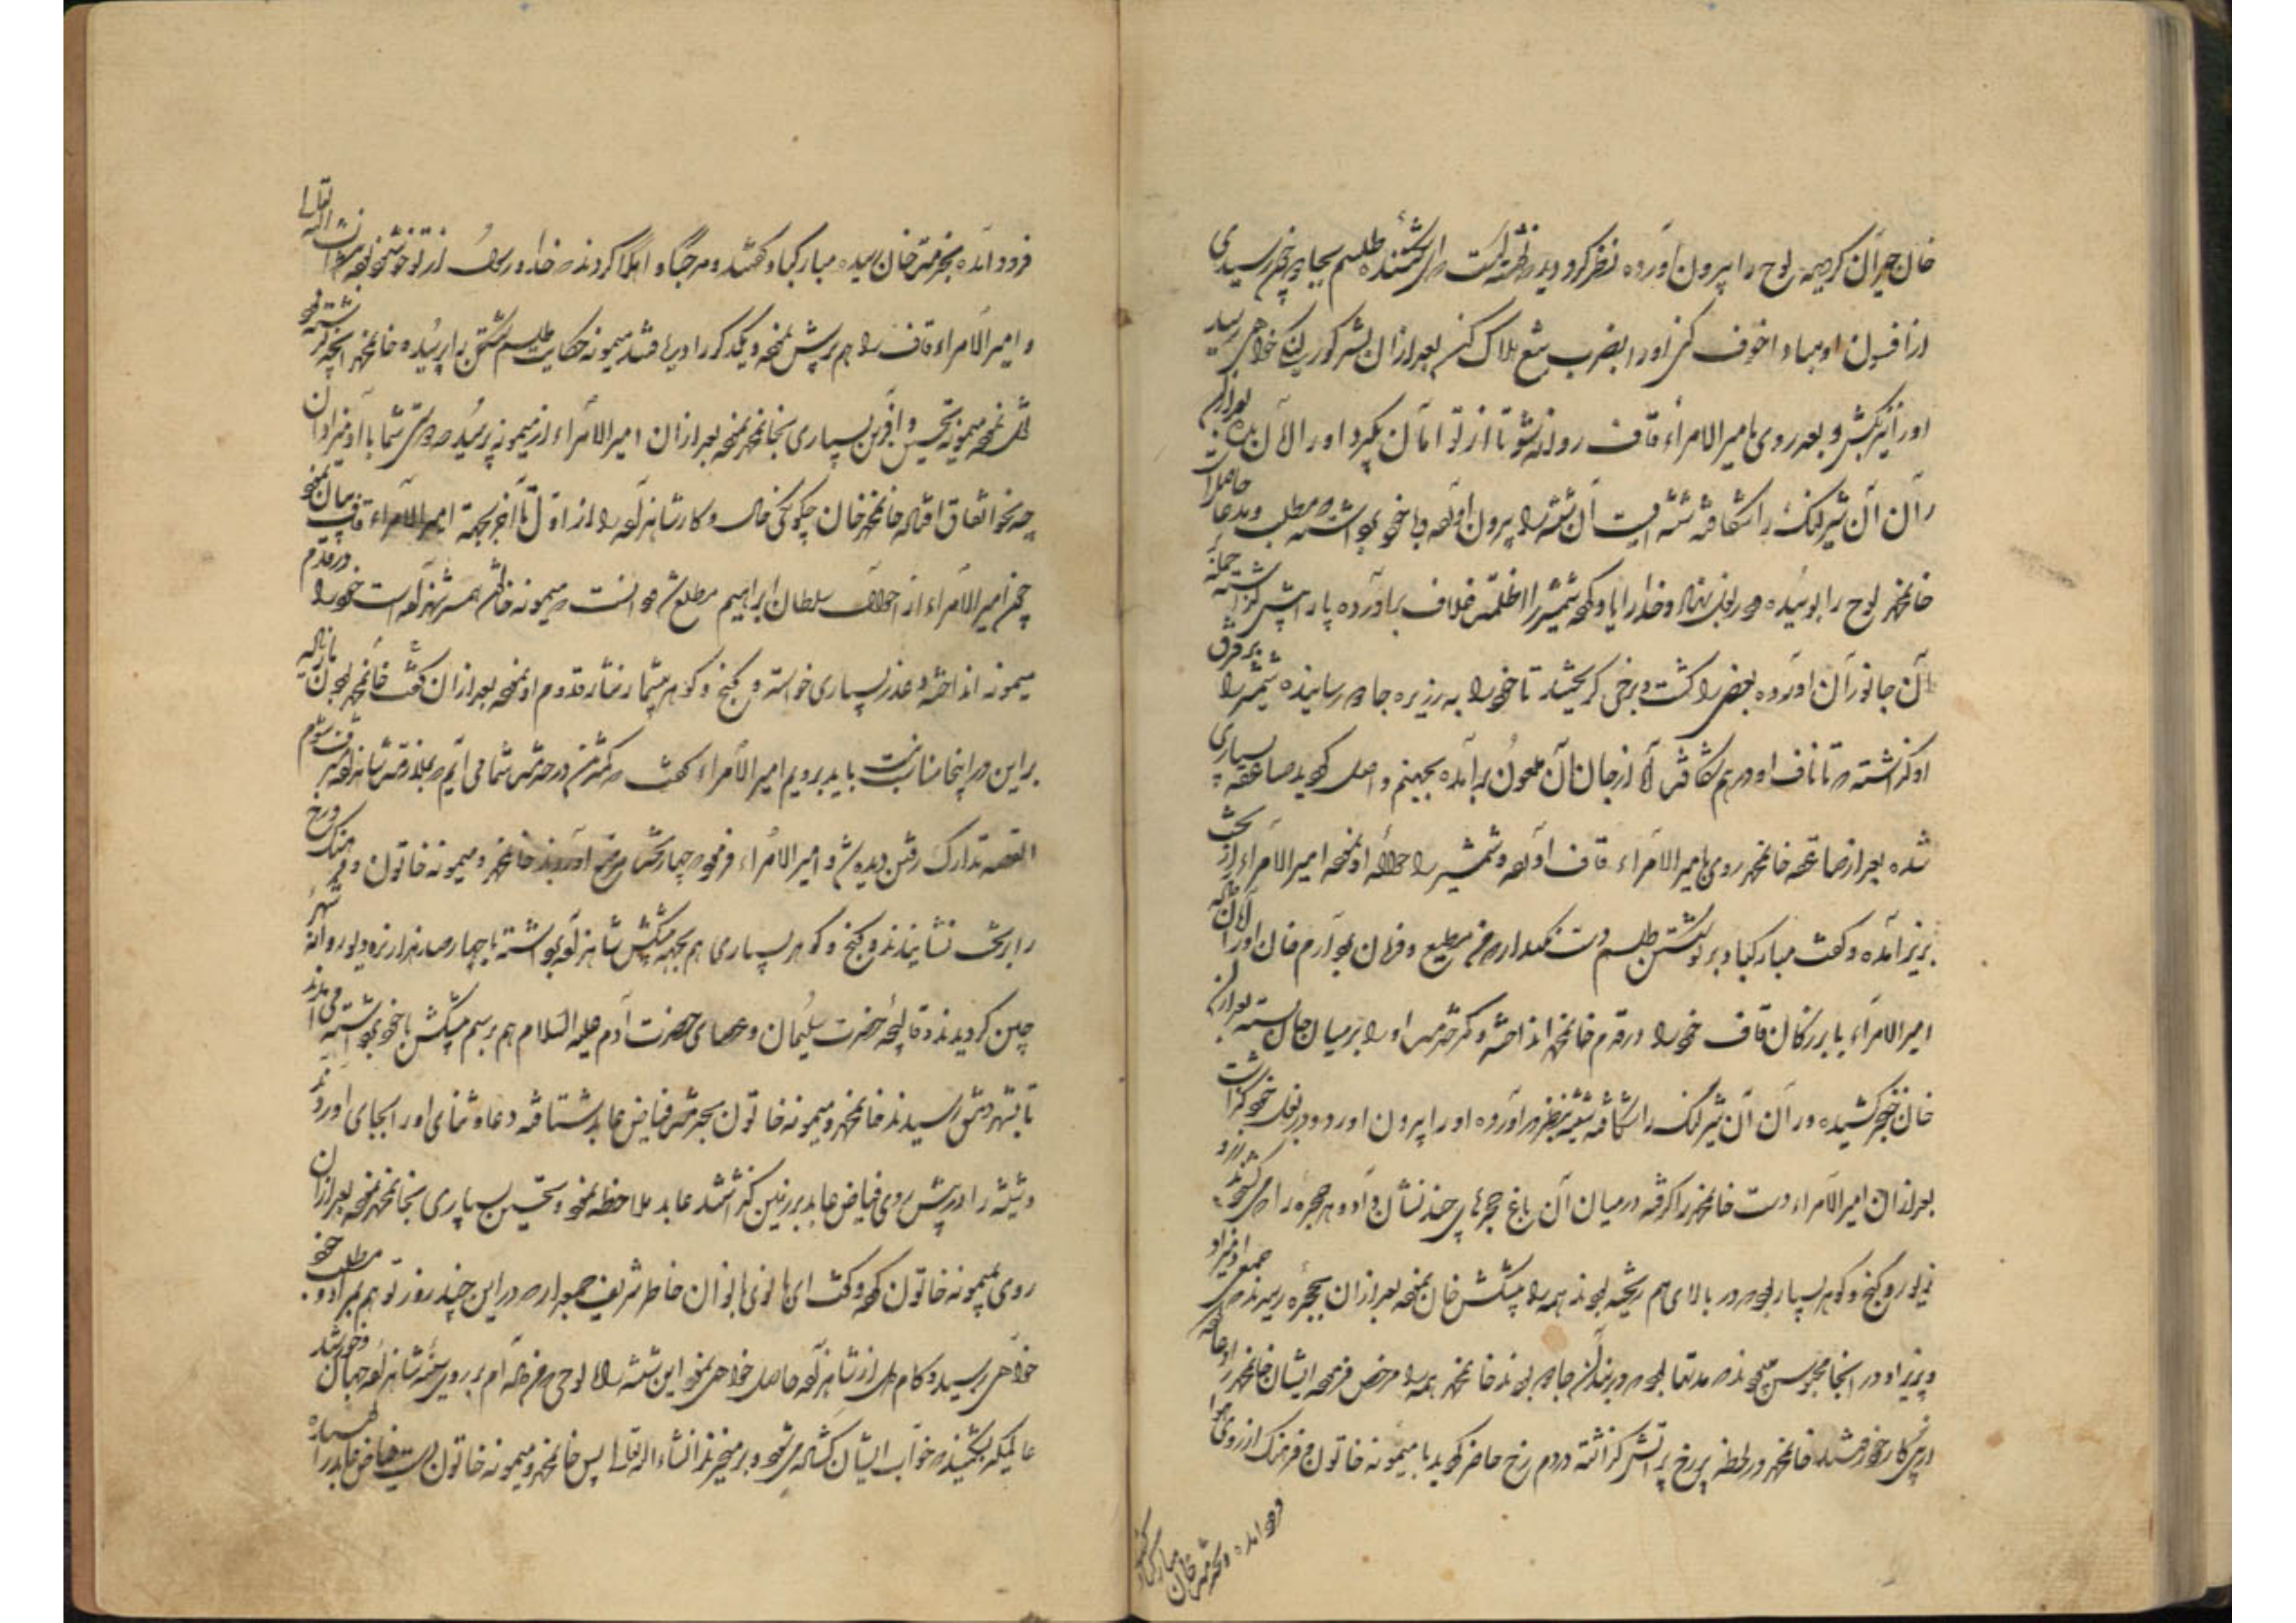 خان حیران گردیده لوح را بیرون آورده نظر کرد دید نوشته است ای شکننده طلسم بجای خوبی رسیدی
از افسون او مبادا خوف کنی او را بضرب تیغ هلاک کنی بعد از آن بشیر کوری خواهی رسید
او را نیز بکش و بعد روی بامیر الامراء قاف روانه شو تا از تو امان بگیرد او را الامان بده بعد از آن
ران آن شیر لنگ را شکافته شیشه ایست آن شیشه را بیرون آورده با خود برداشته مطلب و مدعا حاصل است
خانمحمد لوح را بوسیده در بغل نهاد و خدا را یاد کرده شمشیر را از ظلمت غلاف برآورده پا را پیش گذاشته حمله
بآن جانوران آورده بعضی را کشت و برخی گریختند تا خود را به رزیره جادو رسانیده شمشیر را بر فرق
او گذاشته تا ناف او در هم شکافت از جان آن ملعون برآمده بجهنم واصل گردید صاعقه بسیاری
شده بعد از صاعقه خانمحمد روی بامیر الامراء قاف آورده و شمشیر را حواله او نموده امیر الامراء از تخت
بزیر آمده و گفت مبارکباد بر تو شکستن طلسم دست نگهدار من مطیع و فرمان بردارم خان او را امان داده
امیر الامراء با بزرگان قاف خود را در قدم خانمحمد انداخته و کمر خدمت او را بر میان جان بسته بعد از آن
خان خنجر کشیده و ران آن شیر لنگ را شکافته شیشه بنظر درآورده او را بیرون آورد و در بغل خود گذاشت
بعد از آن امیر الامراء دست خانمحمد را گرفته در میان آن باغ حجره‌های چند نشان داد و هر حجره را می گشودند زر و
زیور و گنج و گوهر بسیار بود در بالای هم ریخته بودند همه را پیشکش خان نموده بعد از آن بحجره رسیدند جمعی آدمیزاد
و پریزاد در آنجا محبوس بودند مدتها بود در بند آن جادو بودند خانمحمد همه را مرخص فرموده ایشان خانمحمد را دعا کرده
در پی کار خود رفتند خانمحمد در لحظه پر رخ بر آتش گذاشته در دم رخ حاضر گردید با میمونه خاتون و فرهنگ از روی هوا
فرود آمده بخدمت خان مبارکباد گفتند
فرود آمده بخدمت خان رسیده مبارکباد گفتند و مرحبا و اهلا کردند خدا و رسول از تو خوشنود باشد انشاء الله تعالی
و امیر الامراء قاف را هم پرسش نموده و یکدیگر را دریافتند میمونه حکایت طلسم شکستن را پرسیده خانمحمد آنچه گذشته بود
نقل نموده میمونه تحسین و آفرین بسیاری بخانمحمد نموده بعد از آن امیر الامراء از میمونه پرسید دوستی شما با آدمیزادان
چه نحو اتفاق افتاده خانمحمد خان چگونگی خان و کار شاهزاده را از اول تا آخر بجهة امیر الامراء قاف بیان نمود
چون امیر الامراء از احوال سلطان ابراهیم مطلع شد دانست میمونه خاتون همسر شاهزاده است خود را در قدم
میمونه انداخته و عذر بسیاری خواسته و گنج و گوهر بیشمار نثار قدوم او نموده بعد از آن گفت خانمحمد بودن ما زیاده
بر این در اینجا مناسب نیست باید برویم امیر الامراء گفت من کمترین در خدمت شما می آیم بملازمت شاهزاده مشرف شوم
القصه تدارک رفتن دیده شد و امیر الامراء فرمود چهار تخت مرصع آوردند خانمحمد و میمونه خاتون و فرهنگ و رخ
را بر تخت نشانیدند و گنج و گوهر بسیاری هم بجهة پیشکش شاهزاده برداشته با چهار صد هزار نره دیو روانه شهر
چین گردیدند و قالیچه حضرت سلیمان و عصای حضرت آدم علیه السلام هم برسم پیشکش با خود برداشته می آمدند
تا بشهر دمشق رسیدند خانمحمد و میمونه خاتون بخدمت فیاض عابد شتافته دعا و ثنای او را بجای آوردند
و شیشه را در پیش روی فیاض عابد بر زمین گذاشتند عابد ملاحظه نمود و تحسین بسیاری بخانمحمد نموده بعد از آن
روی بمیمونه خاتون کرد و گفت ای بانوی بانوان خاطر شریف جمع دار در این چند روز تو هم بمراد و مطلب خود
خواهی رسید و کام دل از شاهزاده حاصل خواهی نمود این شیشه را با لوحی من فرستاده ام بر روی سینه شاهزاده جهان و خورشید
عالمگیر بشکنید خواب ایشان گشاده می شود و برمیخیزند انشاء الله تعالی پس خانمحمد و میمونه خاتون دست فیاض عابد را بوسیده